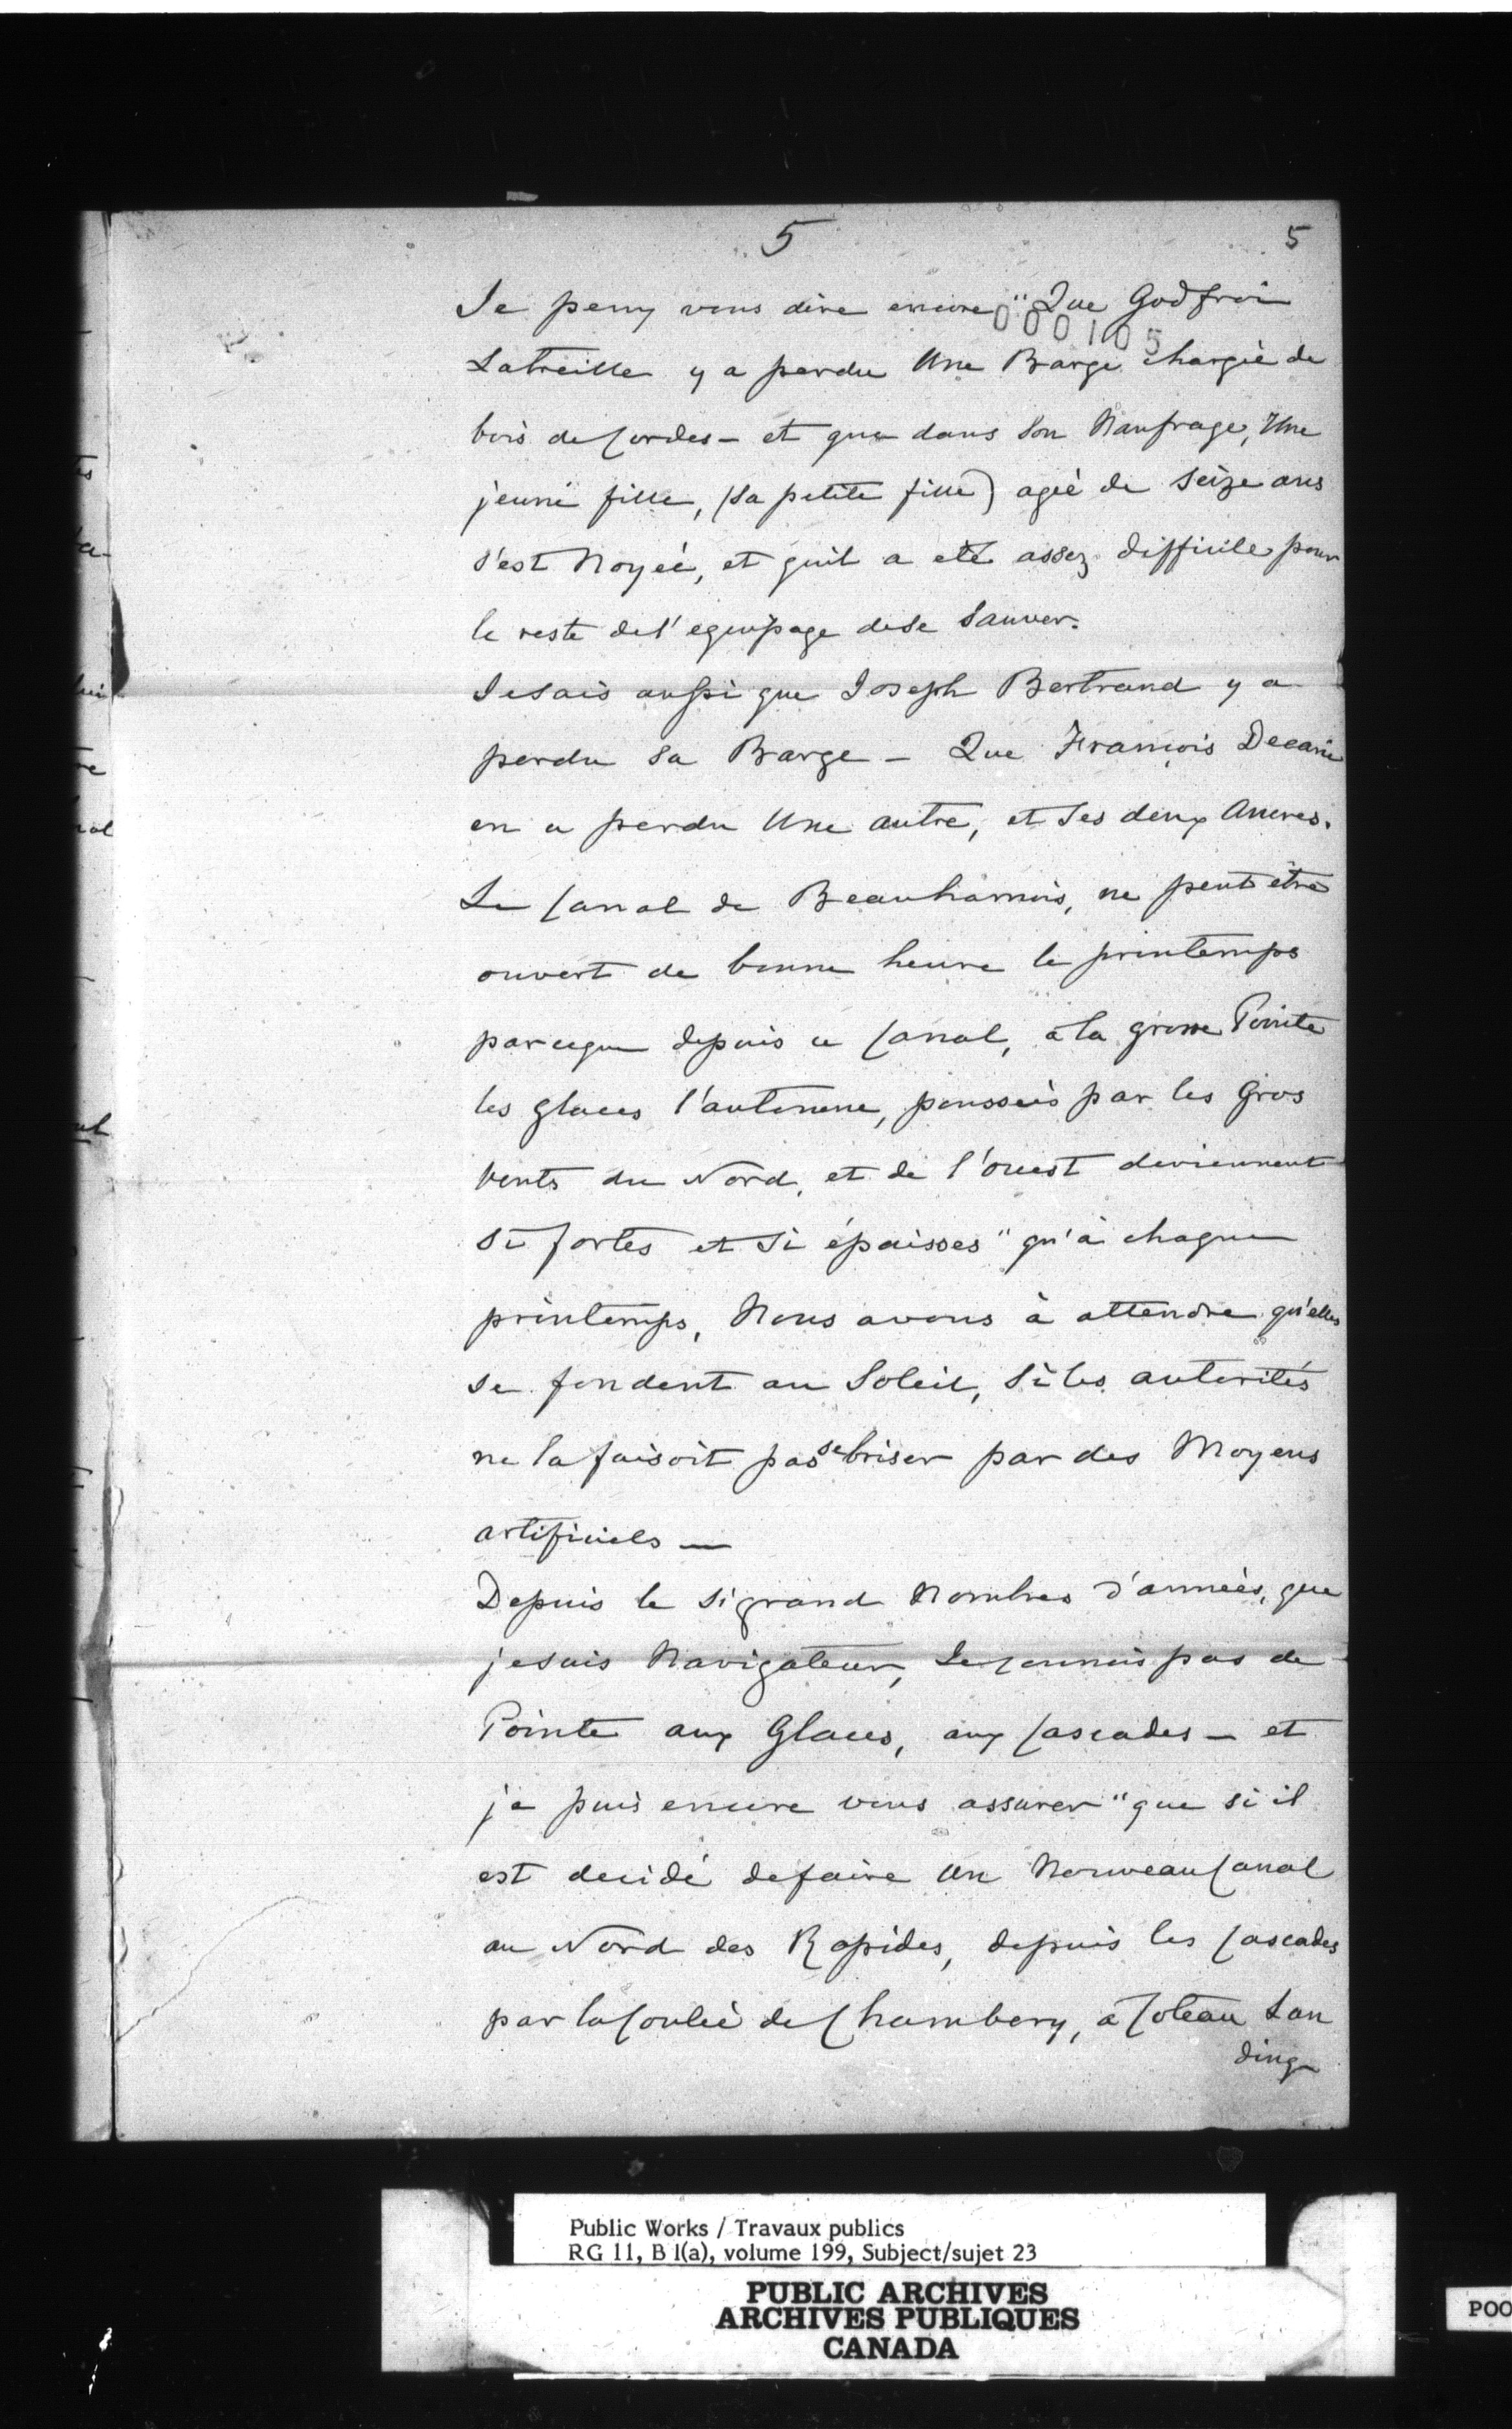 5 5
Je peux vous dire encore "Que Godfroi
000105
Latreille y a perdu Une Barge chargée de
bois de Cordes - et que dans son Naufrage, Une
jeune fille, (sa petite fille) agée de Seize ans
s'est Noyée, et qu'il a eté assez difficile pour
le reste de l'equipage de se Sauver.
Je sais aussi que Joseph Bertrand y a
perdu sa Barge - Que François Decarie
en a perdu Une autre, et Ses deux Ancres.
Le Canal de Beauharnois, ne peut être
ouvert de bonne heure le printemps
parceque depuis ce Canal, à la grosse Pointe
les glaces l'automne, poussés par les Gros
Vents du Nord, et de l'ouest deviennent
si fortes et si épaisses "qu'à chaque
printemps, Nous avons à attendre qu'elles
se fondent au Soleil, Si les autorités
ne la faisoit pas se briser par des Moyens
artificiels —
Depuis le si grand Nombres d'années, que
je suis Navigateur, Je connais pas de
Pointe aux Glaces, aux Cascades - et
je puis encore vous assurer "que si il
est decidé de faire Un Nouveau Canal
au Nord des Rapides, depuis les Cascades
par la Coulée de Chambery, à Coteau Lan
ding
Public Works / Travaux publics
RG 11, B 1(a), volume 199, Subject/sujet 23
PUBLIC ARCHIVES
ARCHIVES PUBLIQUES
CANADA
POO